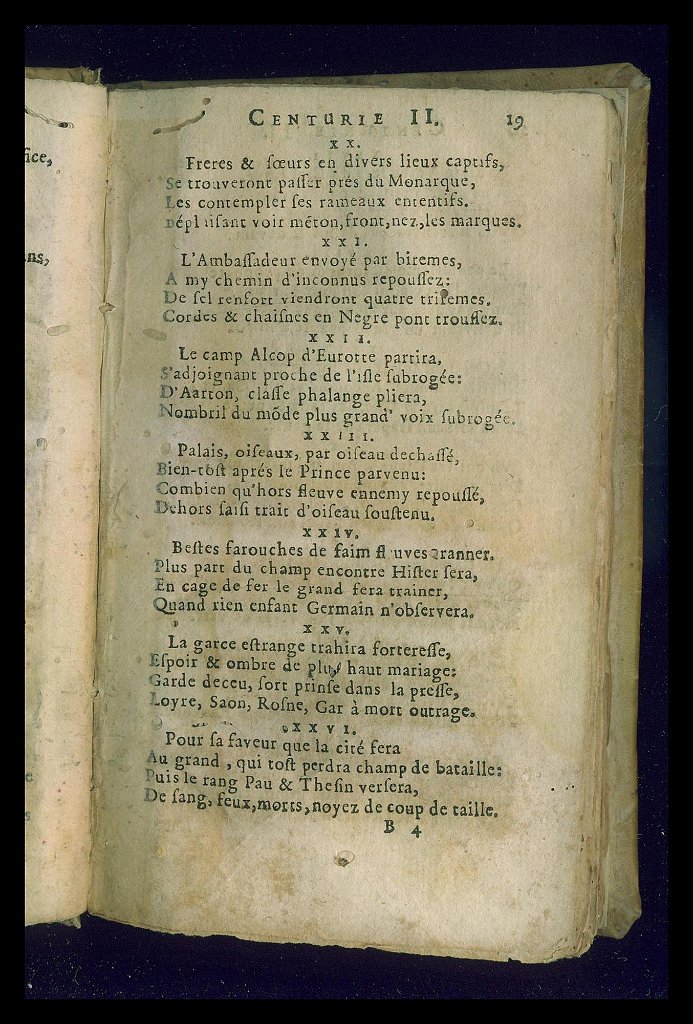 ice,
ns,
CENTURIE II. 19
XX.
Freres & sœurs en divers lieux captifs,
Se trouveront passer prés du Monarque,
Les contempler ses rameaux ententifs.
Déplaisant voir mẽton,front,nez,les marques.
XXI.
L'Ambassadeur envoyé par biremes,
A my chemin d'inconnus repoussez:
De sel renfort viendront quatre triremes.
Cordes & chaisnes en Negre pont troussez.
XXII.
Le camp Alcop d'Eurotte partira,
S'adjoignant proche de l'isle subrogée:
D'Aarton, classe phalange pliera,
Nombril du mõde plus grand' voix subrogée.
XXIII.
Palais, oiseaux, par oiseau dechassé,
Bien-tost aprés le Prince parvenu:
Combien qu'hors fleuve ennemy repoussé,
Dehors saisi trait d'oiseau soustenu.
XXIV.
Bestes farouches de faim fl uves tranner.
Plus part du champ encontre Hister sera,
En cage de fer le grand fera trainer,
Quand rien enfant Germain n'observera.
XXV.
La garce estrange trahira forteresse,
Espoir & ombre de plus haut mariage:
Garde deceu, fort prinse dans la presse,
Loyre, Saon, Rosne, Gar à mort outrage.
XXVI.
Pour sa faveur que la cité fera
Au grand, qui tost perdra champ de bataille:
Puis le rang Pau & Thesin versera,
De sang, feux,morts,noyez de coup de taille.
B 4